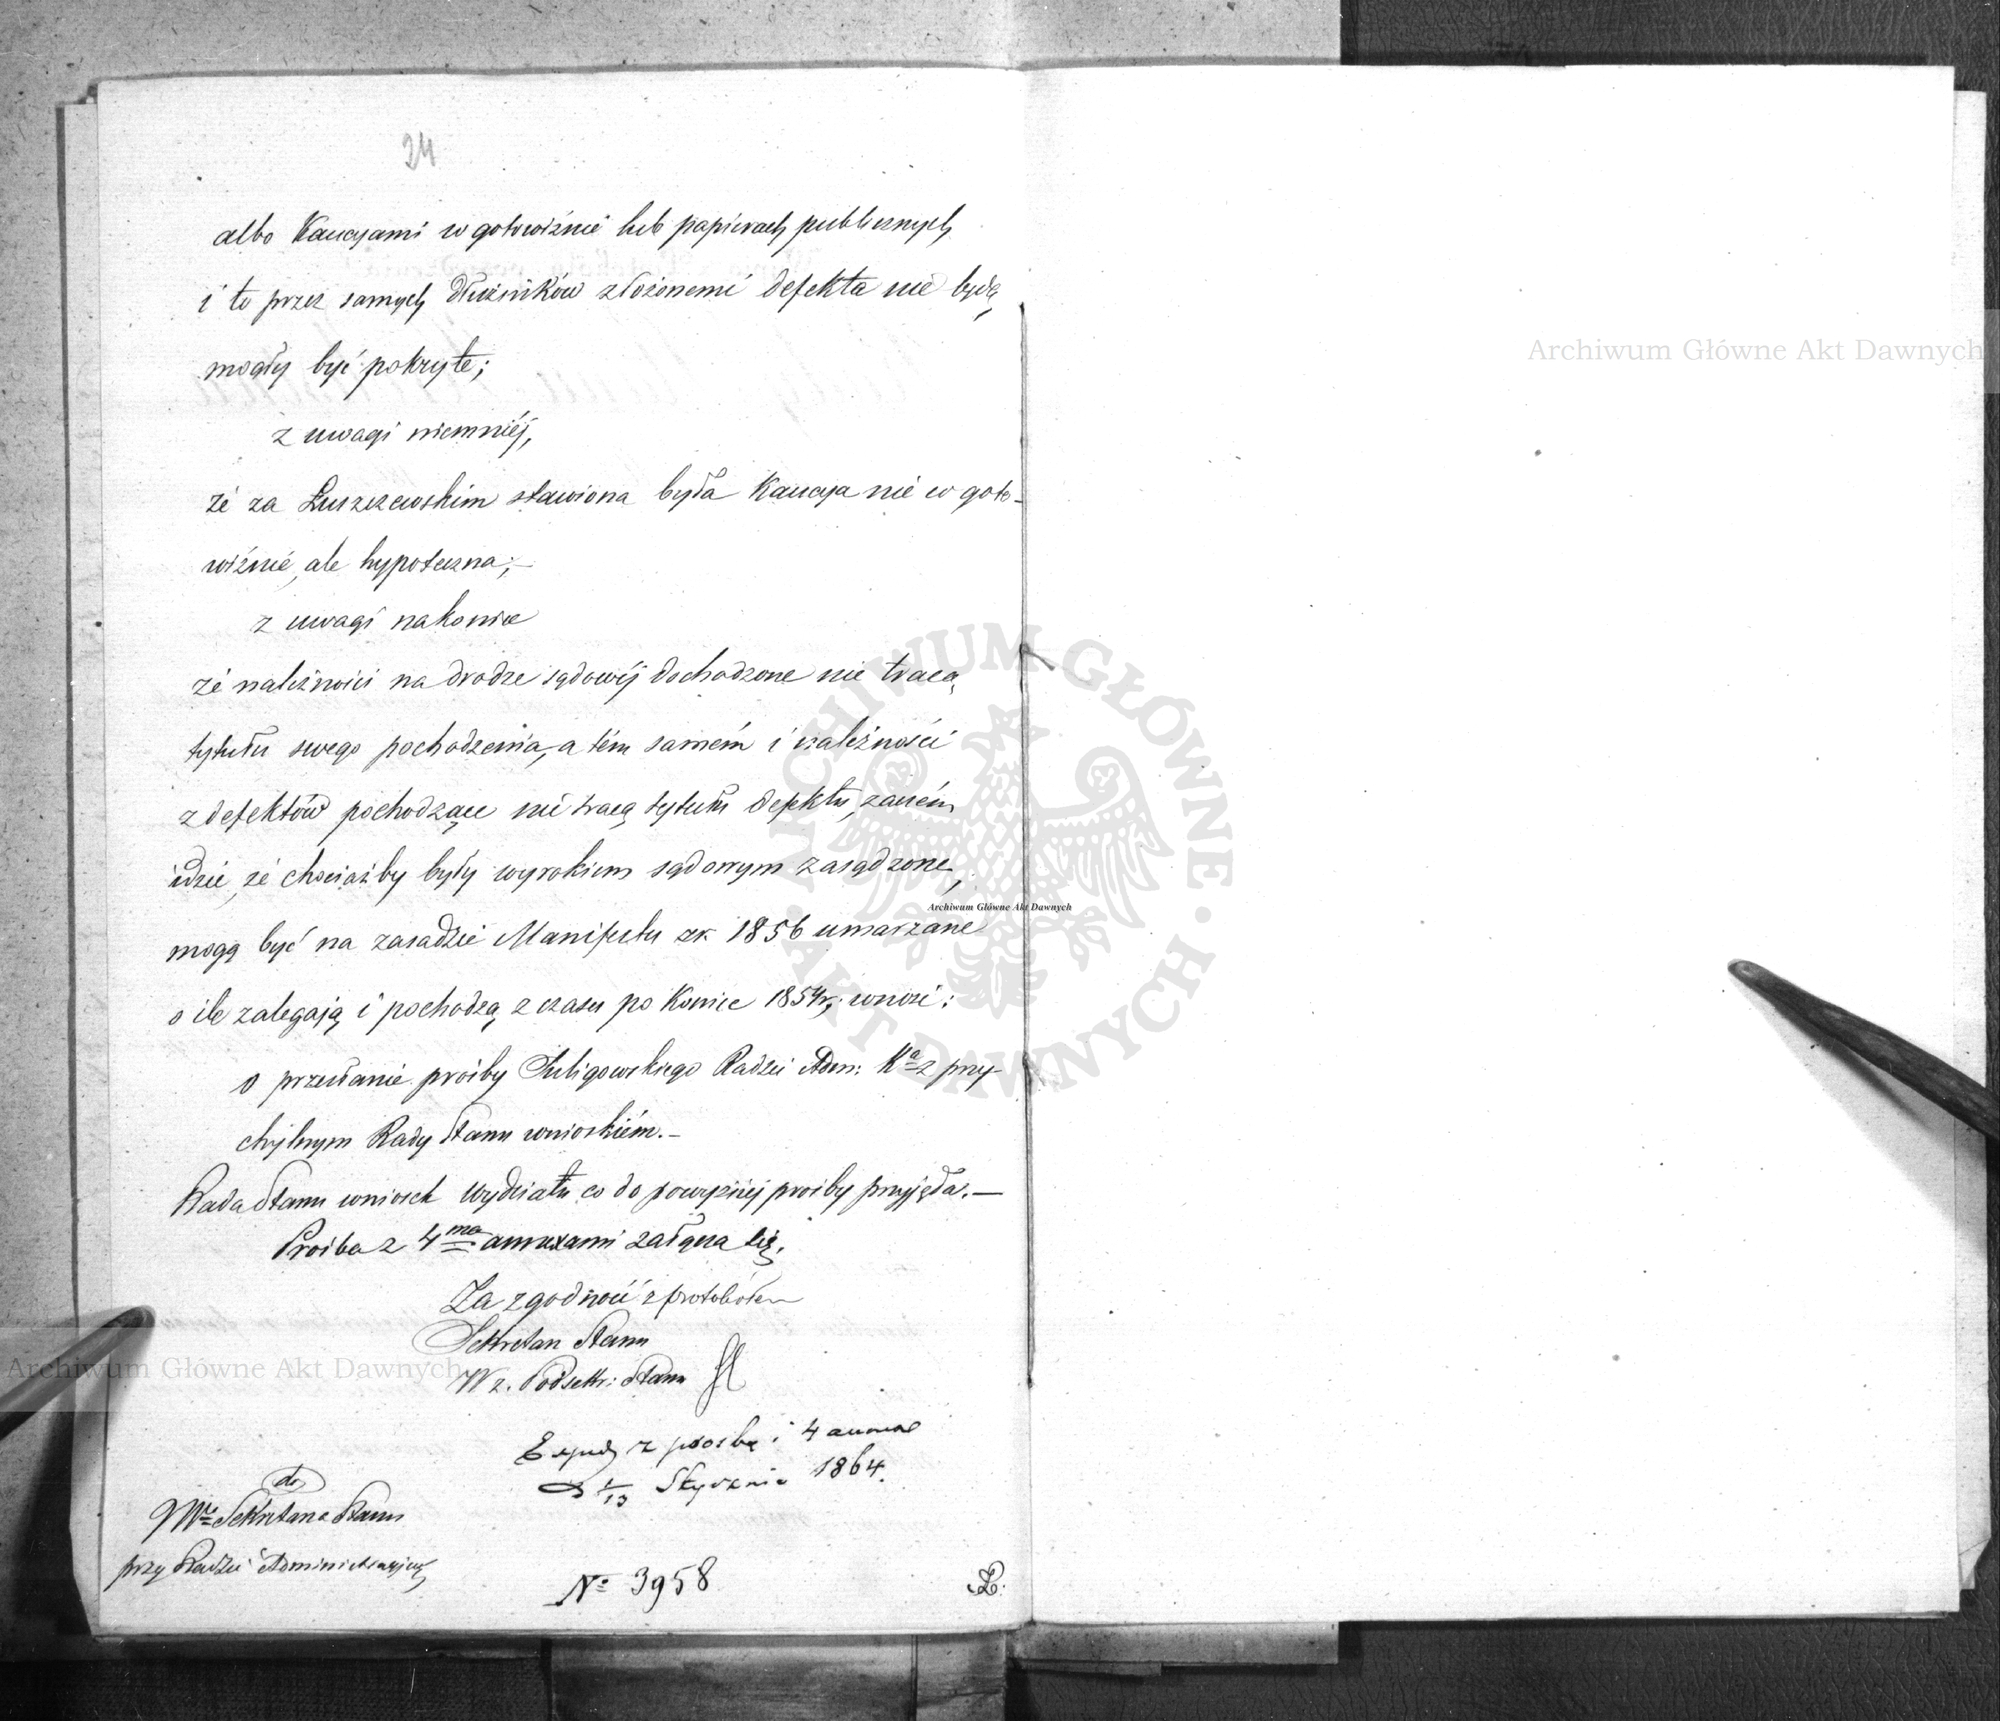 24
albo Kaucyami w gotowiźnie lub papierach publicznych
i to przez samych dłużników złożonemi defekta nie będą
mogły być pokryte;
z uwagi niemniéj,
że za Łuszczewskim stawiona była Kaucya nie w goto-
wiźnie, ale hypoteczna;—
z uwagi nakoniec
że należności na drodze sądowéj dochodzone nie tracą
tytułu swego pochodzenia, a tém samém i należności
z defektów pochodzące nie tracą tytułu defektu, zaczém
idzie, że chociażby były wyrokiem sądowym zasądzone,
mogą być na zasadzie Manifestu z r. 1856 umarzane
o ile zalegają i pochodzą z czasu po koniec 1854 r, wnosi:
o przesłanie prośby Suligowskiego Radzie Adm: Kª z przy-
chylnym Rady Stanu wnioskiém.—
Rada Stanu wniosek Wydziału co do powyższéj prośby przyjęła.—
Prośba z 4ma annexami załącza się.
Za zgodność z protokółem
Sekretarz Stanu
W z. Podsekr: Stanu
z prośbą i 4 annexa
D 1/13 Stycznia 1864.
do
JW° Sekretarza Stanu
przy Radzie Administracyjnéj
N° 3958
Archiwum Główne Akt Dawnych
Archiwum Główne Akt Dawnych
Archiwum Główne Akt Dawnych
ARCHIWUM GŁÓWNE · AKT DAWNYCH ·